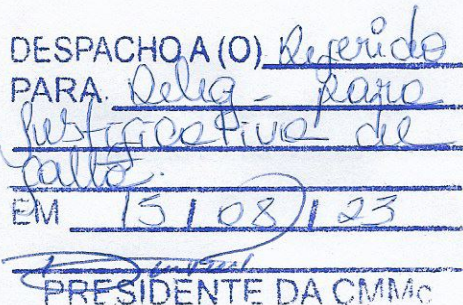 DESPACHO A (O) Deferido
PARA. Deleg - para
justificativa de
falta.
EM 15 / 08 / 23
PRESIDENTE DA CMMc